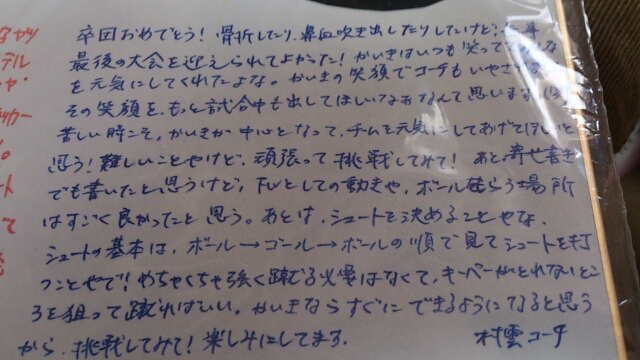 卒団おめでとう!骨折したり、鼻血吹き出したりしたけど、
最後の大会を迎えられてよかった!かいきはいつも笑って
を元気にしてくれたよな。かいきの笑顔でコーチもいやされ
その笑顔を、もっと試合中も出してほしいなぁなんて思います
苦しい時こそ、かいきが中心となって、チームを元気にしてあげてほしいと
思う!難しいことやけど、頑張って挑戦してみて!あと寄せ書き
でも書いたと思うけど、FWとしての動きや、ボールもらう場所
はすごく良かったと思う。あとは、シュートを決めることやな。
シュートの基本は、ボール→ゴール→ボールの順で見てシュートを打
つことやで!めちゃくちゃ強く蹴る必要はなくて、キーパーがとれないとこ
ろを狙って蹴ればいい。かいきならすぐにできるようになると思う
から、挑戦してみて!楽しみにしてます。
村雲コーチ